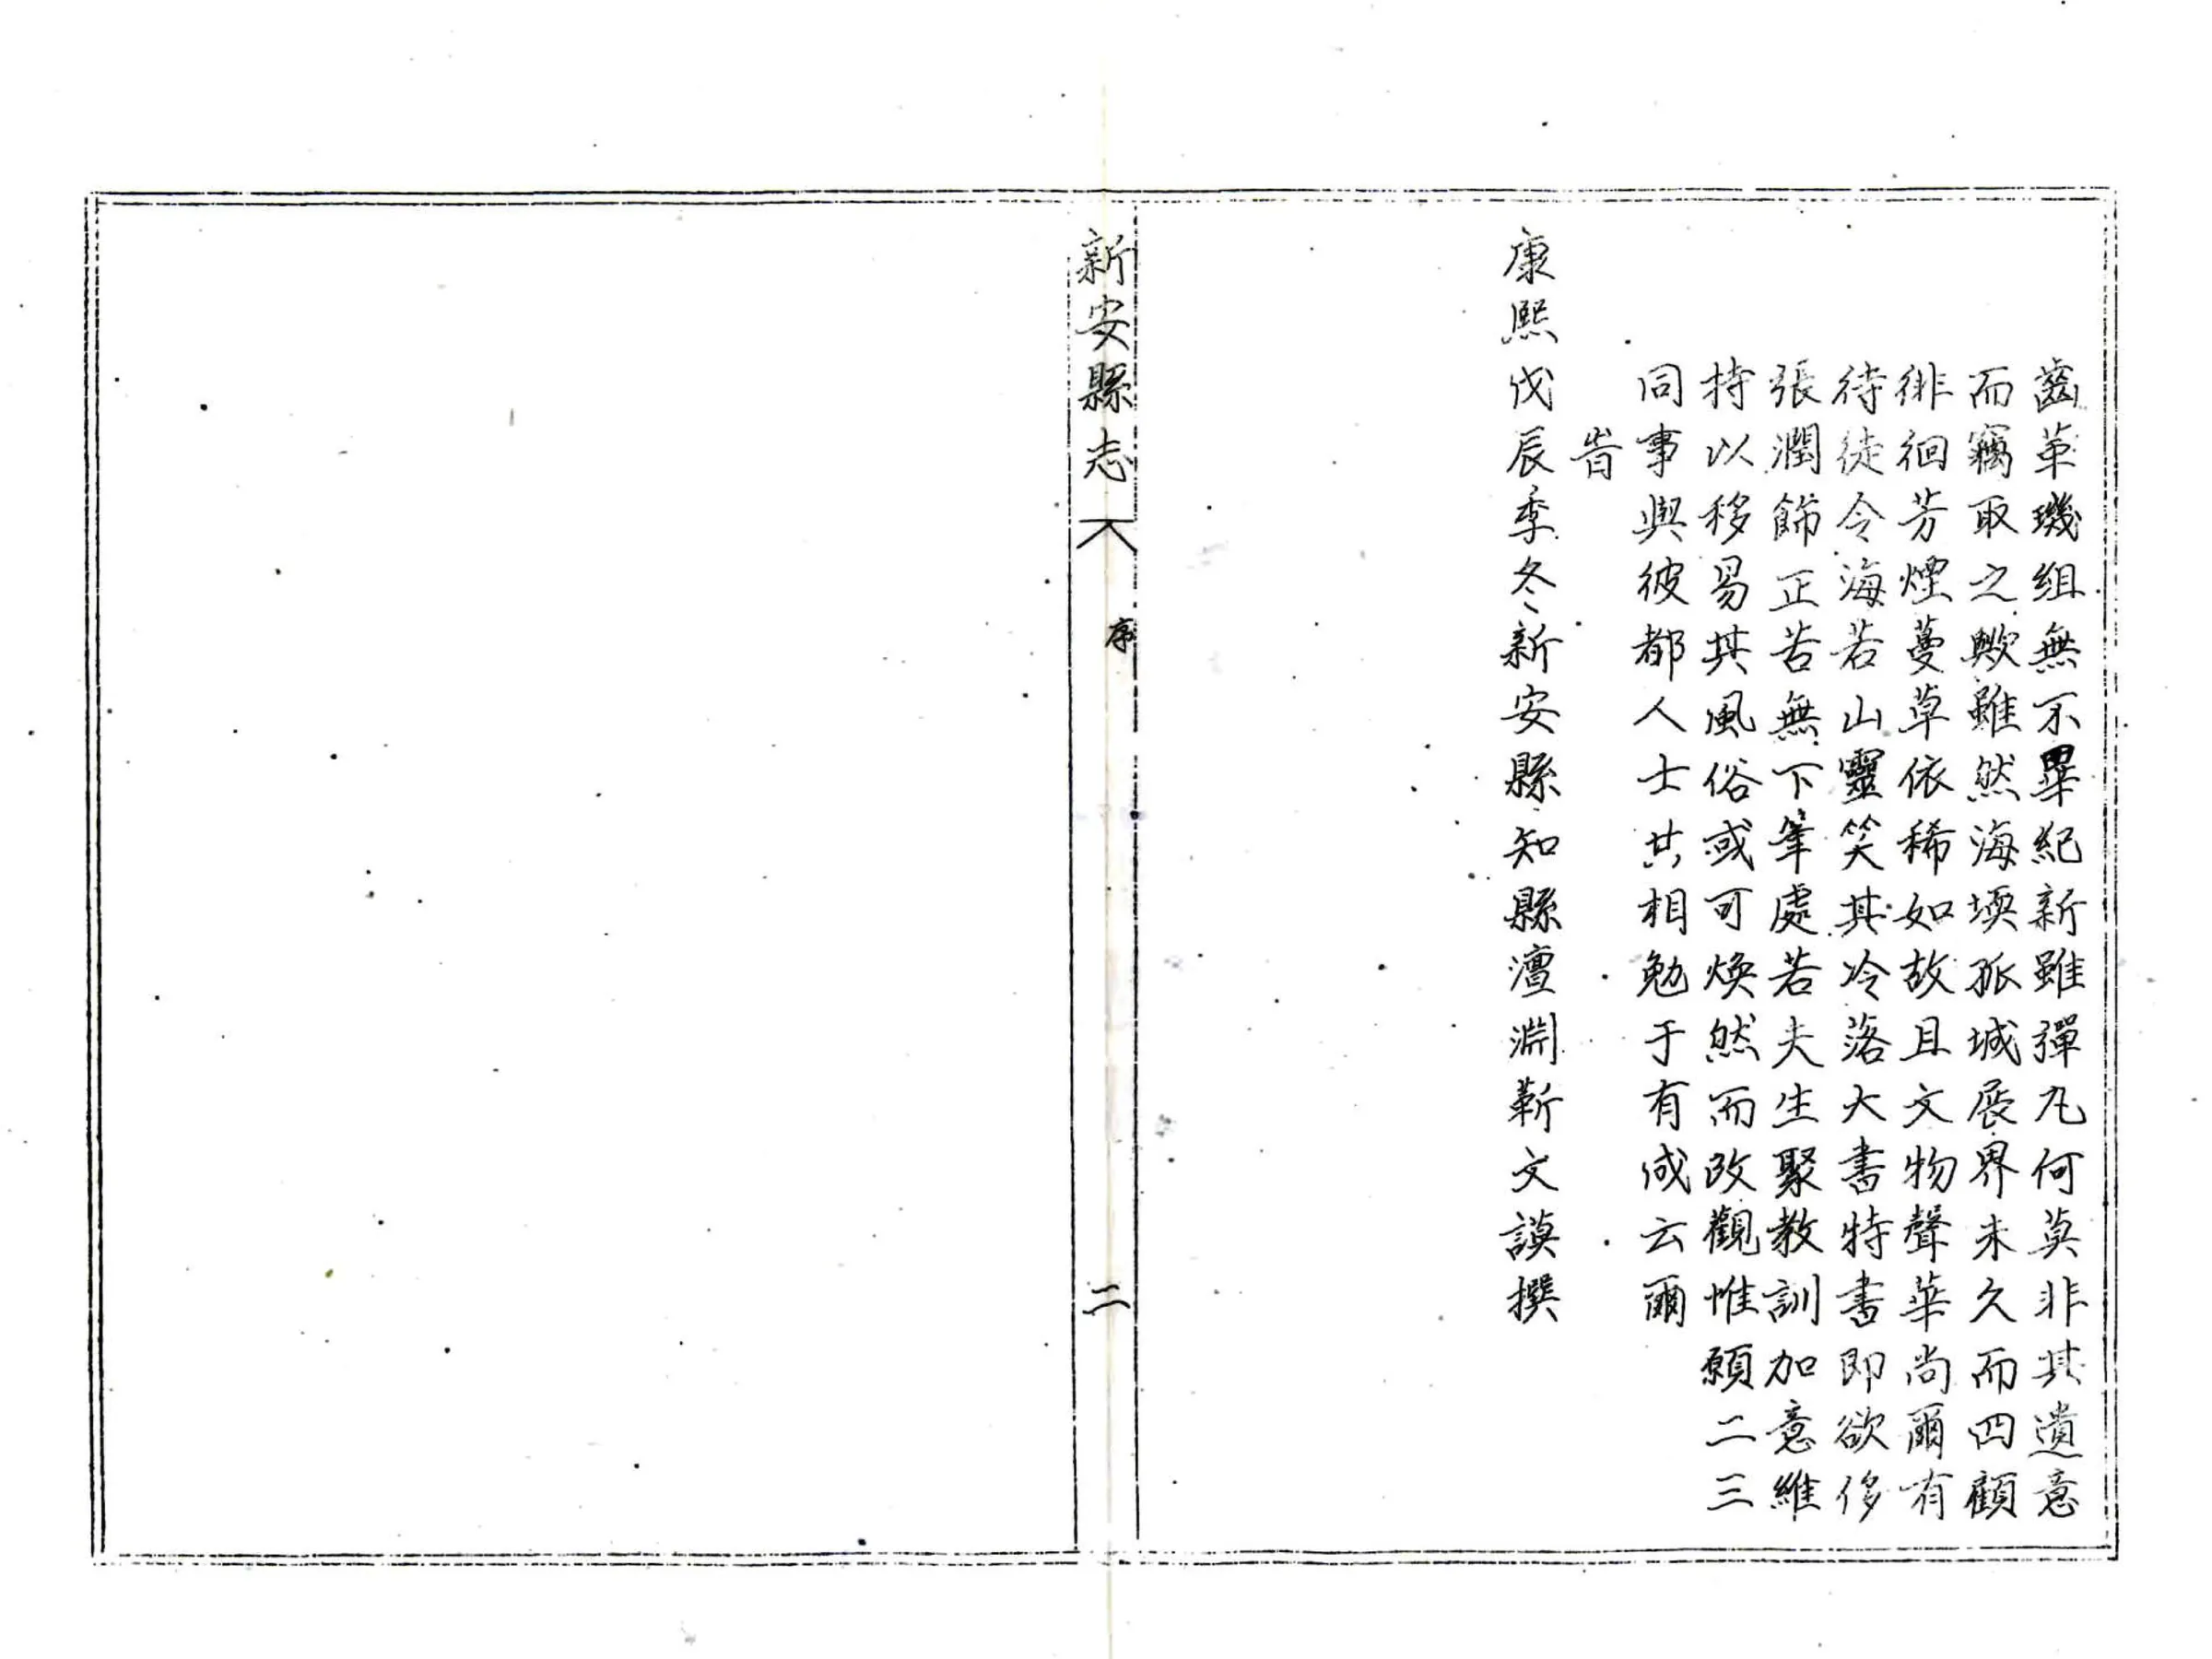 齒革璣組無不畢紀新雖彈丸何莫非其遺意
而竊取之歟雖然海堧孤城展界未久而四顧
徘徊芳煙蔓草依稀如故且文物聲華尚爾有
待徒令海若山靈笑其冷落大書特書即欲侈
張潤餙正苦無下筆處若夫生聚教訓加意維
持以移易其風俗或可煥然而改觀惟願二三
同事與彼都人士共相勉于有成云爾
旹
康熙戊辰季冬新安縣知縣澶淵靳文謨撰
新安縣志 序 二